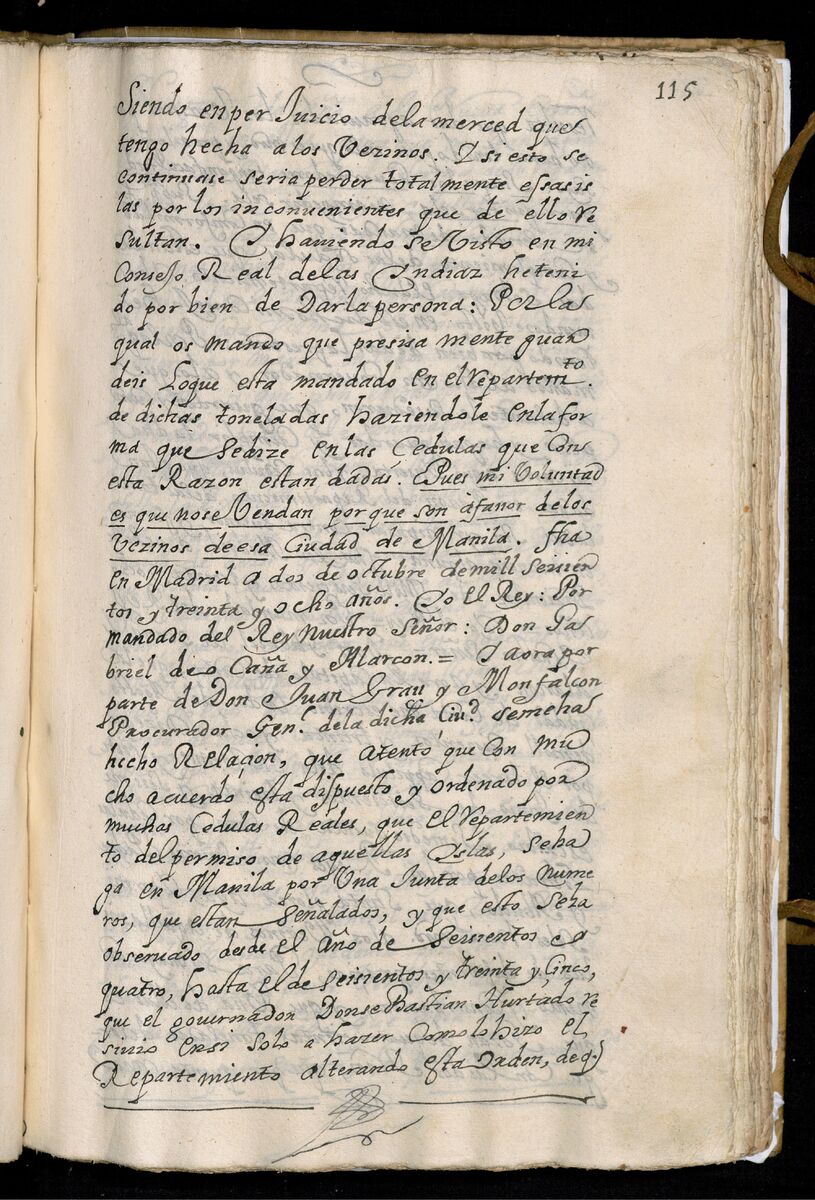 115
Siendo en per Juicio dela merced que
tengo hecha alos Vezinos. Y si esto se
continuase seria perder totalmente essas is
las por los inconuenientes que de ello re
sultan. Y hauiendo se Visto en mi
Consejo Real delas Yndiaz heteni
do por bien de Darla persona: Por la
qual os mando que presisa mente guar
deis Loque esta mandado en el repartem.to
de dichas toneladas haziendole en la for
ma que sedize en las Cedulas que Con
esta Razon estan dadas. Pues mi Voluntad
es que nose Vendan por que son afanor delos
Vezinos de esa Ciudad de Manila. fha
en Madrid a dos de octubre de mill seisien
tos y treinta y ocho años. Yo El Rey: Por
mandado del Rey nuestro Señor: Don Ga
briel de o Caña y Alarcon. = Y aora por
parte de Don Juan Grau y Monfalcon
Procurador Gen.l dela dicha Ciu.d semeha
hecho Relacion, que atento que con mu
cho acuerdo esta dispuesto y ordenado por
muchas Cedulas Reales, que el repartimien
to del permiso de aquellas Yslas, seha
ga en Manila por Una Junta delos nume
ros, que estan señalados, y que esto seha
obseruado desde el año de seisientos y
quatro, hasta el de seisientos y treinta y Cinco,
que el gouernador Don se Bastian Hurtado re
siuio en si solo a hazer Como lo hizo el
Repartemiento alterando esta Orden, de q.e